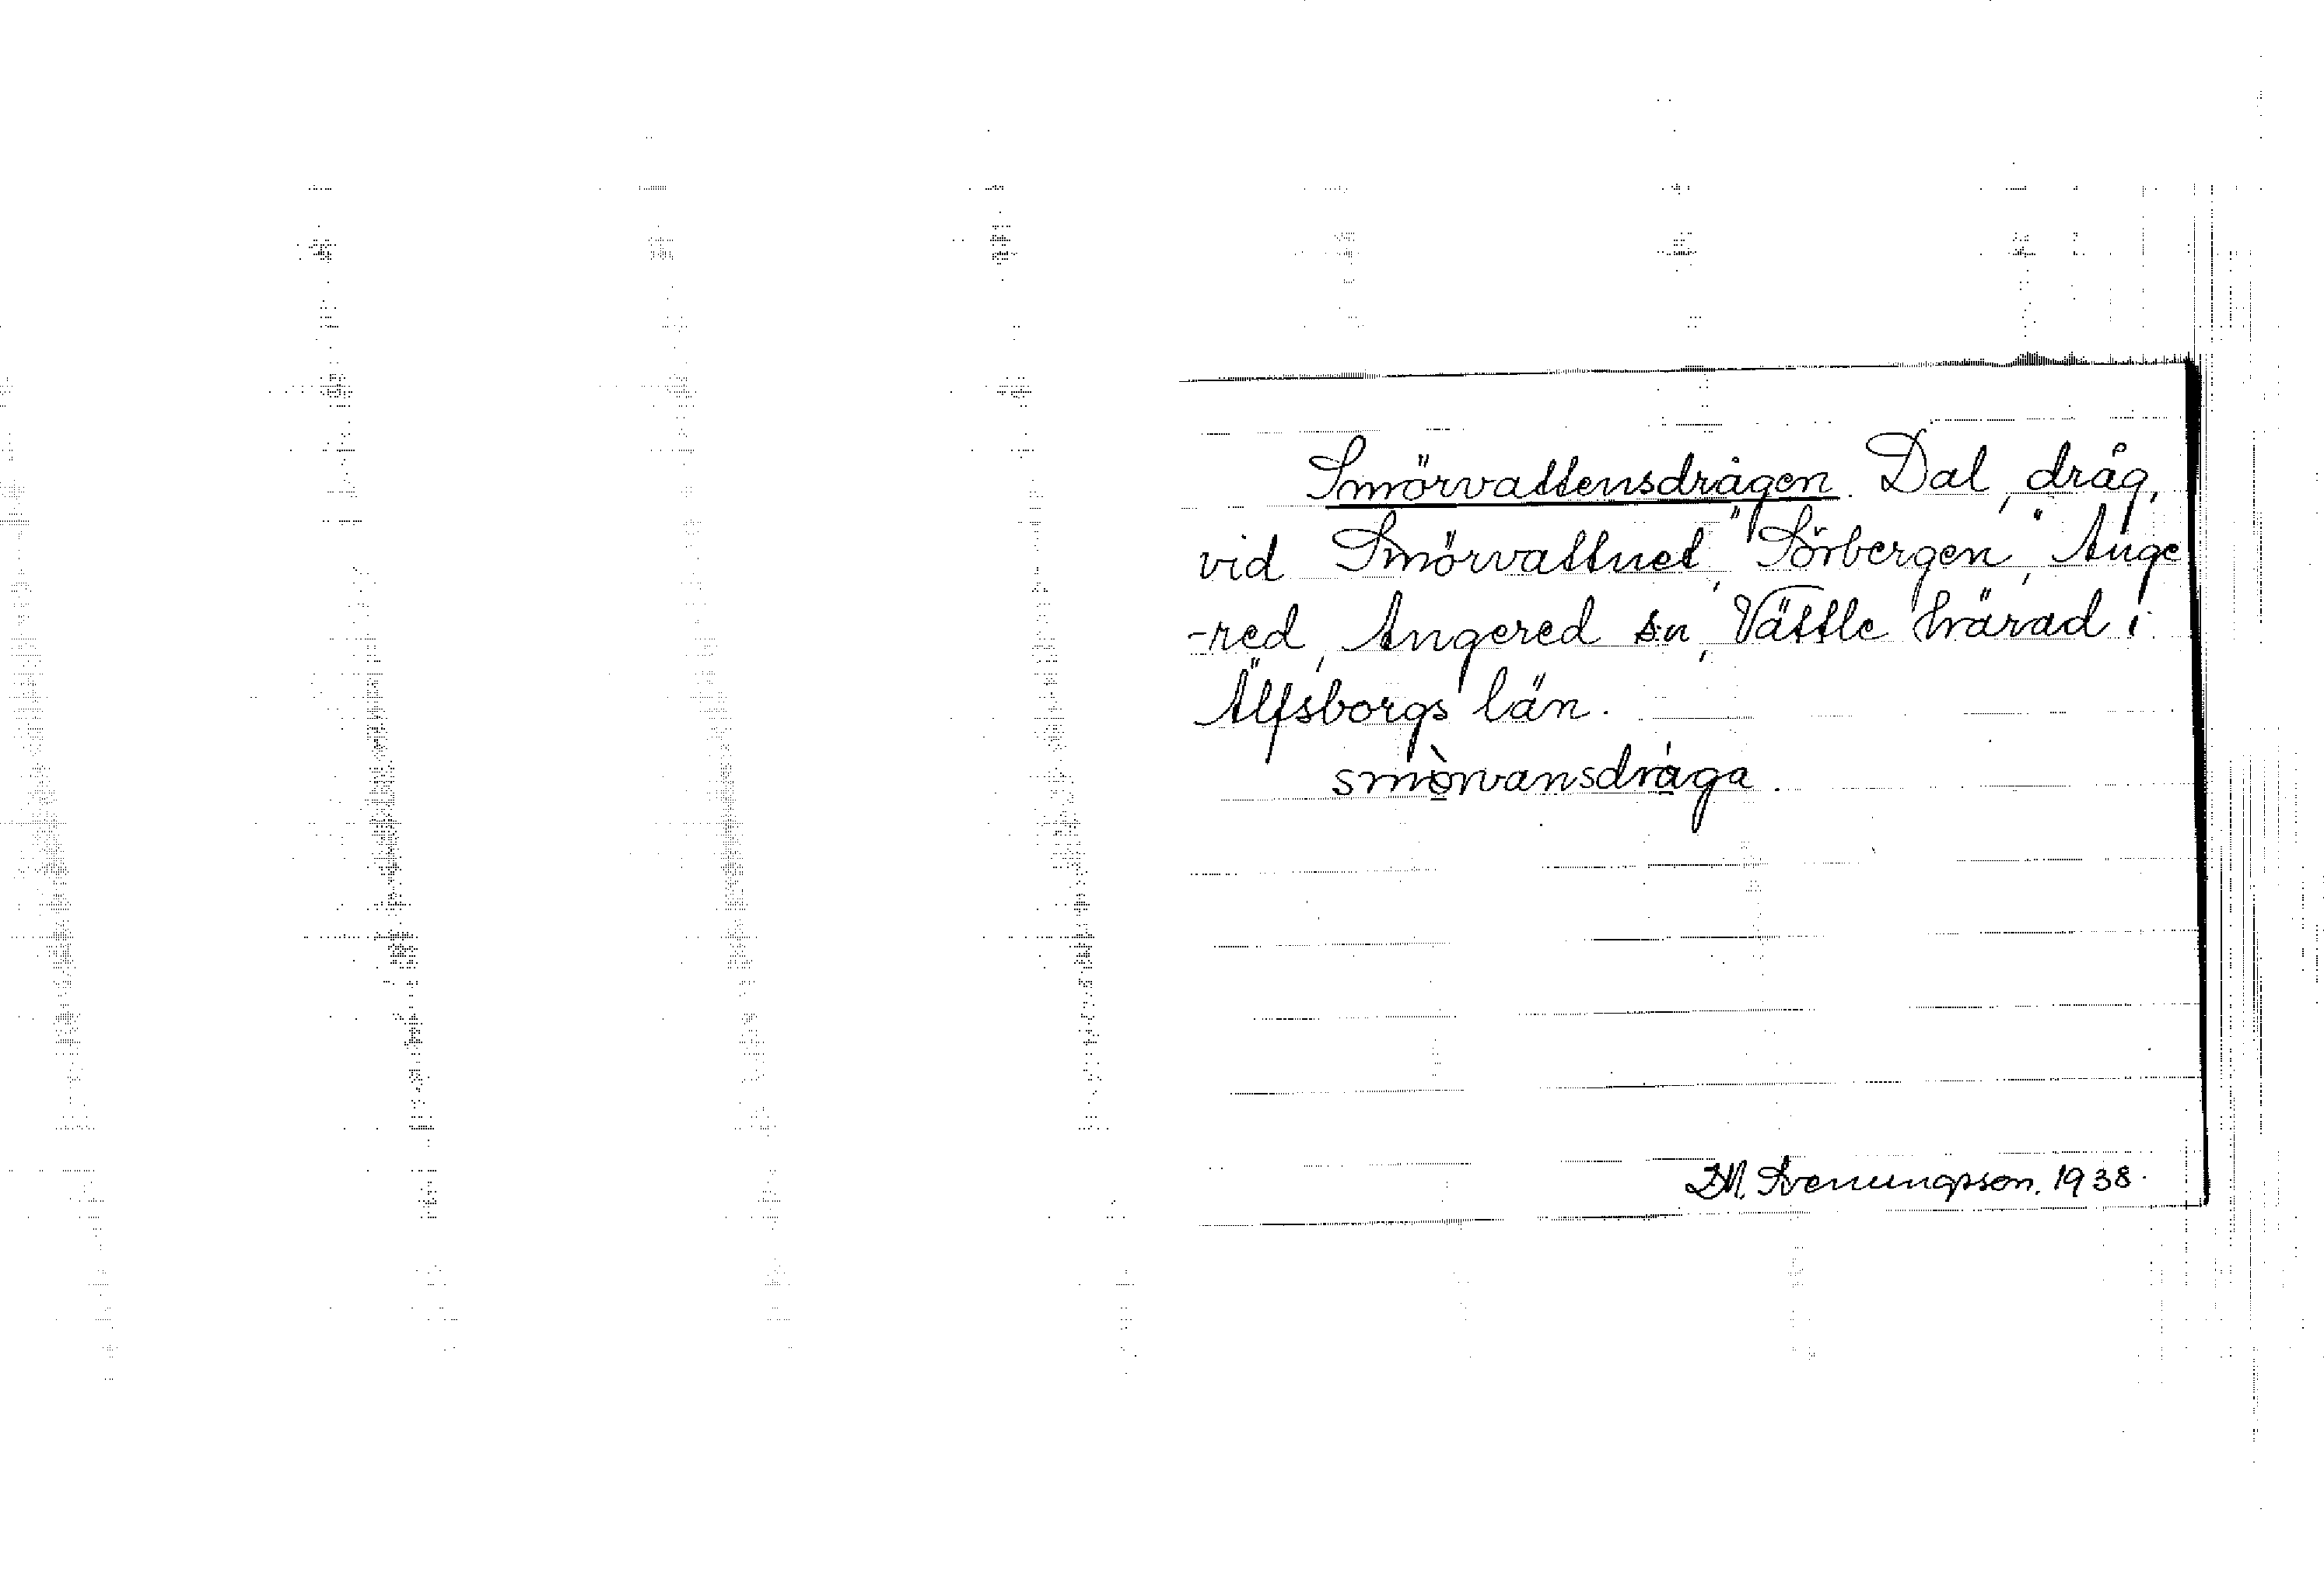 Smörvattensdrågen. Dal, dråg,
vid Smörvattnet, "Sörbergen", Ange
-red, Angered sn, Vättle härad i
Älfsborgs län.
smòrvansdrága.
D.M. Svenungsson. 1938.